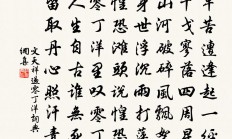 辛苦遭逢起一經
戈寥落四周星
山河破碎風飄
身世浮沉雨打
惶恐灘頭說惶恐
零丁洋里嘆零
人生自古誰
留取丹心照汗青
文天祥過零丁洋詞典
網喜